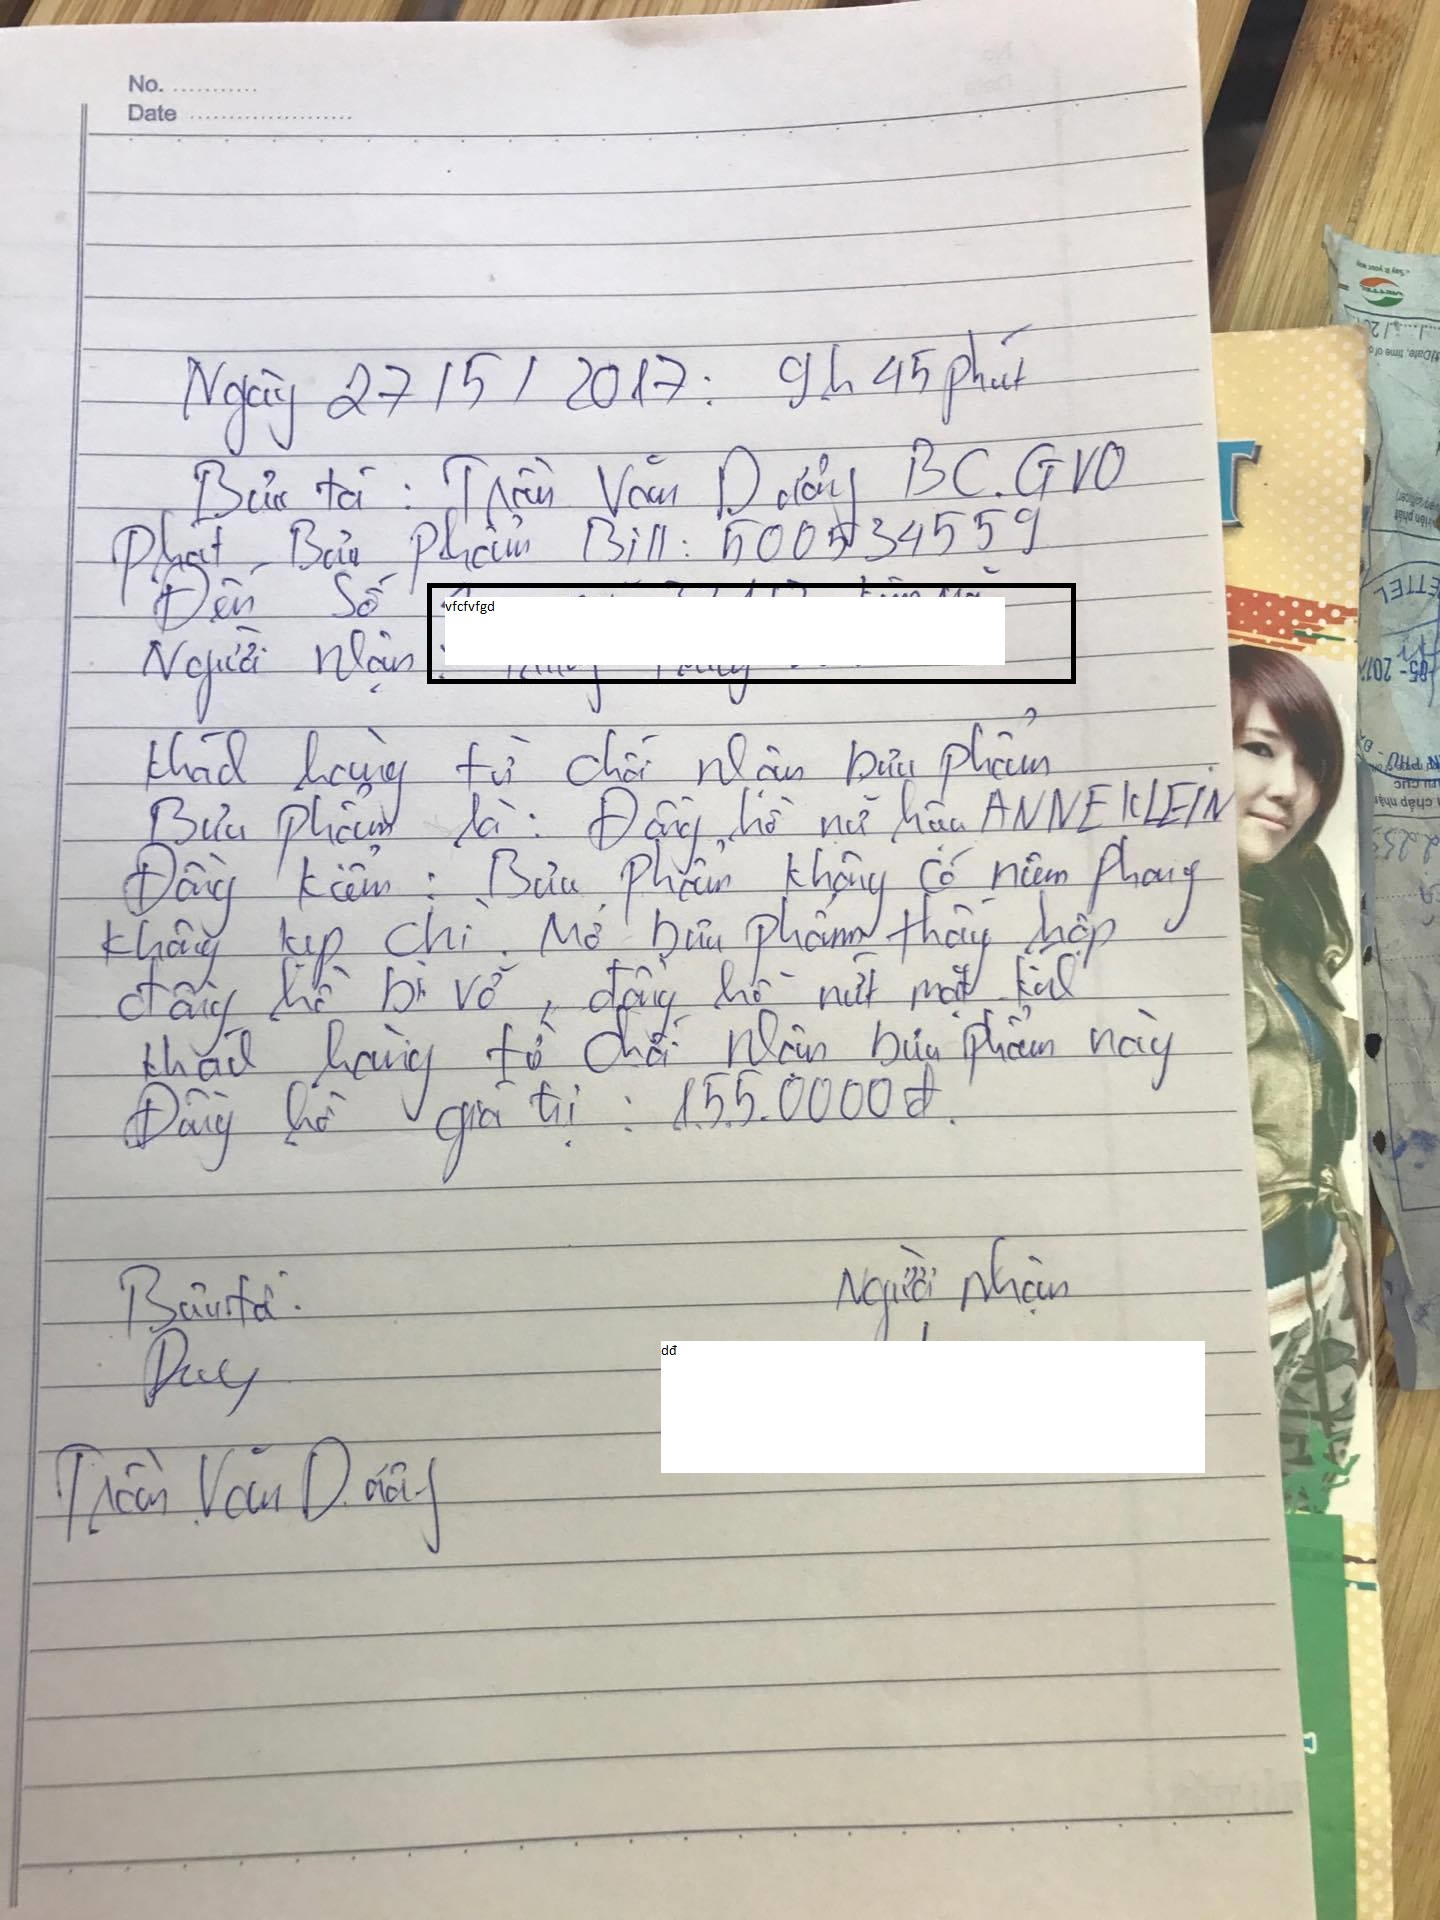 No. ...........
Date .....................
Ngày 27/5/2017: 9h45phút
Bưu tá: Trần Văn Dưỡng BC.GVO
Phát Bưu phẩm Bill: 500534559
Đến Số
vfcfvfgd
Người nhận:
Khách hàng từ chối nhận bưu phẩm
Bưu phẩm là: Đồng hồ nữ hiệu ANNE KLEIN
Đồng kiểm: Bưu phẩm không có niêm phong
không kẹp chì. Mở bưu phẩm thấy hộp
đồng hồ bị vỡ, đồng hồ nứt mặt kính
khách hàng từ chối nhận bưu phẩm này
Đồng hồ giá trị: 155.0000đ.
Bưu tá.
Người nhận
dđ
Trần Văn Dưỡng
Say it your way
VIETTEL
05-201